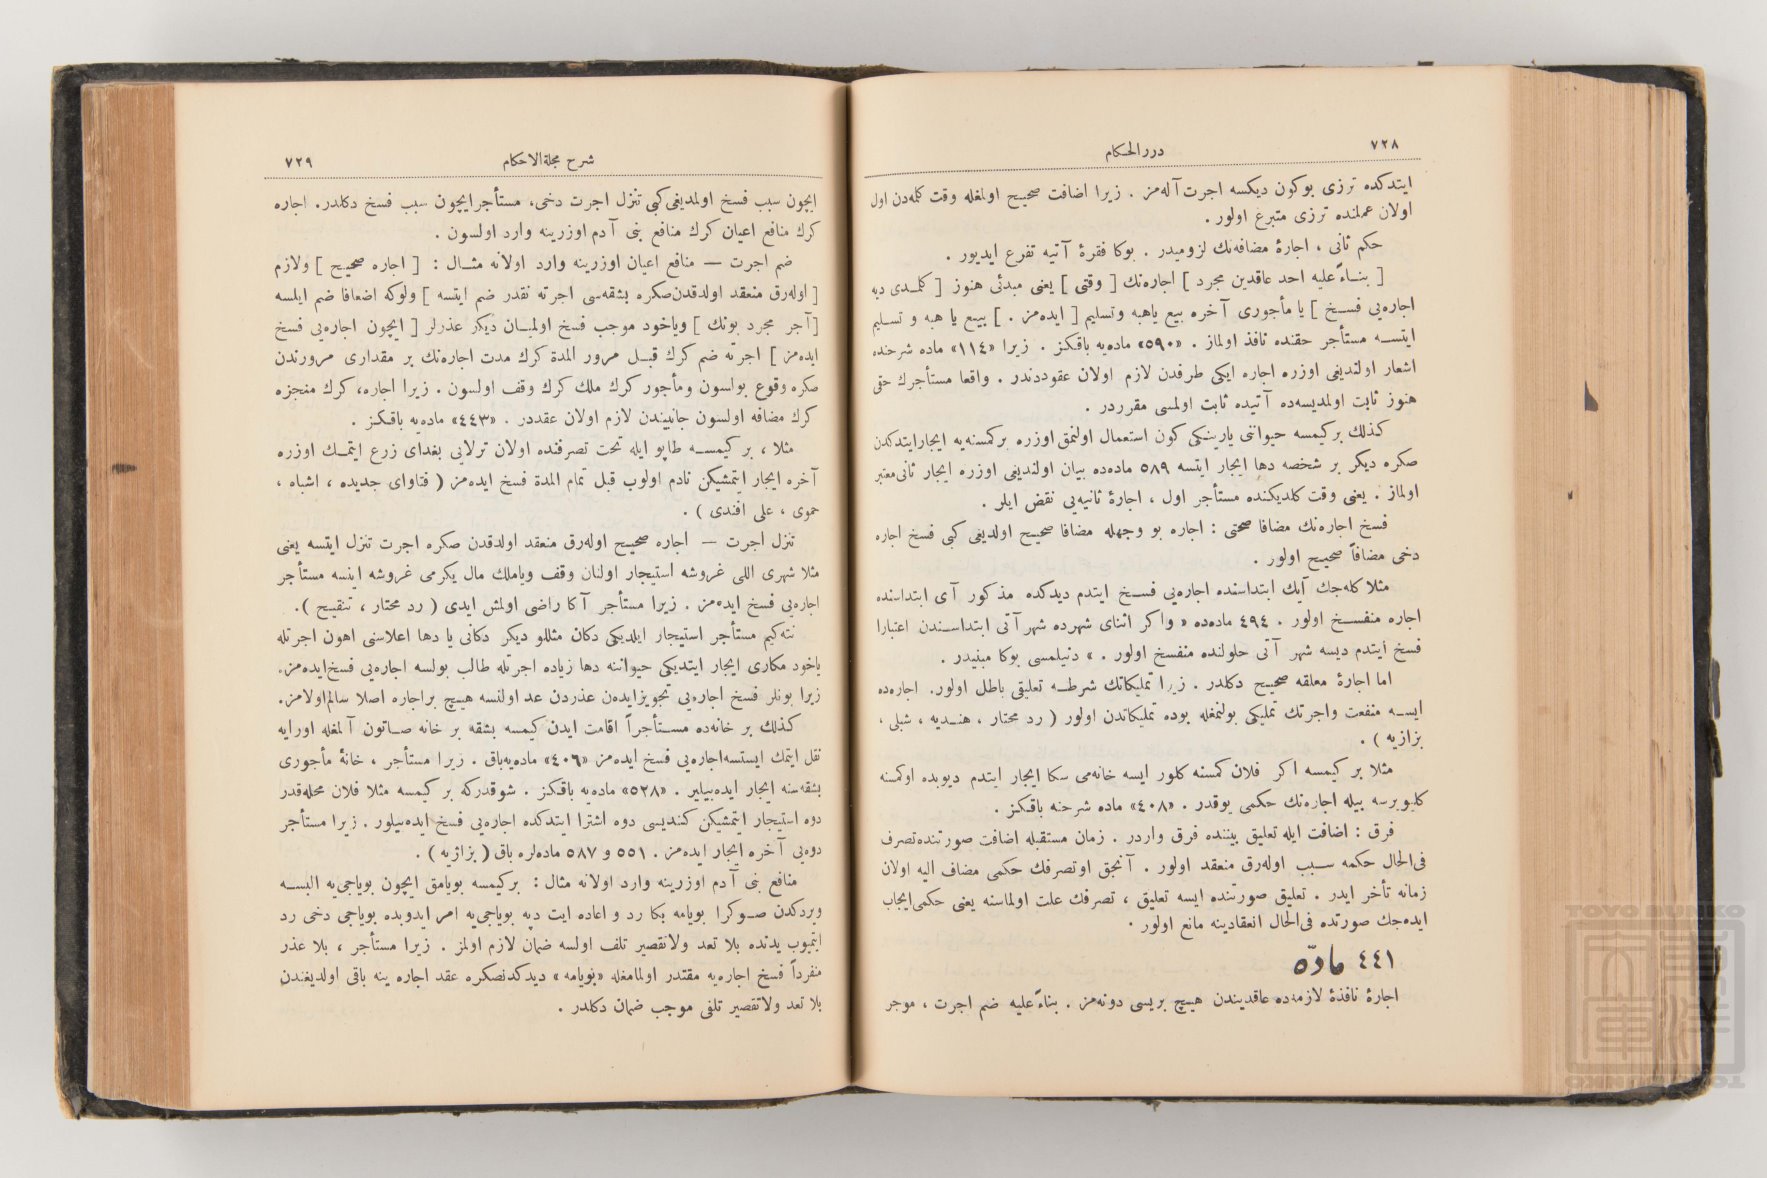 ٧٢٨
دررالحكام
ايتدكده ترزى بوكون ديكسه اجرت آله‌مز . زيرا اضافت صحيح اولمغله وقت كلمه‌دن اول
اولان عملنده ترزى متبرع اولور .
حكم ثانى ، اجارۀ مضافه‌نك لزوميدر . بوكا فقرۀ آتيه تفرع ايديور .
[ بنـاءً عليه احد عاقدين مجرد ] اجاره‌نك [ وقتى ] يعنى مبدئى هنوز [ كلمـدى ديه
اجاره‌يى فسـخ ] يا مأجورى آخره بيع ياهبه وتسليم [ ايده‌مز . ] بيـع يا هبه و تسـليم
ايتسـه مستأجر حقنده نافذ اولماز . «٥٩٠» ماده‌يه باقكز . زيرا «١١٤» ماده شرحنده
اشعار اولنديغى اوزره اجاره ايكى طرفدن لازم اولان عقوددندر . واقعا مستأجرك حقى
هنوز ثابت اولمديسه‌ده آتيده ثابت اولمسى مقرردر .
كذلك بر كيمسه حيواننى يارينكى كون استعمال اولنمق اوزره بركمسنه‌يه ايجارايتدكدن
صكره ديكر بر شخصه دها ايجار ايتسه ٥٨٩ ماده‌ده بيان اولنديغى اوزره ايجار ثانى معتبر
اولماز . يعنى وقت كلديكنده مستأجر اول ، اجارۀ ثانيه‌يى نقض ايلر .
فسخ اجاره‌نك مضافا صحتى : اجاره بو وجهله مضافا صحيح اولديغى كبى فسخ اجاره
دخى مضافاً صحيح اولور .
مثلا كله‌جك آيك ابتداسنده اجاره‌يى فسـخ ايتدم ديدكده مذكور آى ابتداسنده
اجاره منفسـخ اولور . ٤٩٤ ماده‌ده « واكر اثناى شهرده شهر آتى ابتداسـندن اعتبارا
فسخ ايتدم ديسه شهر آتى حلولنده منفسخ اولور . » دنيلمسى بوكا مبنيدر .
اما اجارۀ معلقه صحيح دكلدر . زيرا تمليكاتك شرطـه تعليقى باطل اولور. اجاره‌ده
ايسـه منفعت واجرتك تمليكى بولنمغله بوده تمليكاتدن اولور ( رد محتار ، هنـديه ، شبلى ،
بزازيه ) .
مثلا بر كيمسه اكر فلان كمسنه كلور ايسه خانه‌مى سكا ايجار ايتدم ديوبده اوكمسنه
كليويرسه بيله اجاره‌نك حكمى يوقدر . «٤٠٨» ماده شرحنه باقكز .
فرق : اضافت ايله تعليق بيننده فرق واردر . زمان مستقبله اضافت صورتنده تصرف
فى‌الحال حكمه سـبب اوله‌رق منعقد اولور . آنجق اوتصرفك حكمى مضاف اليه اولان
زمانه تأخر ايدر . تعليق صورتنده ايسه تعليق ، تصرفك علت اولماسنه يعنى حكمى ايجاب
ايده‌جك صورتده فى‌الحال انعقادينه مانع اولور .
٤٤١ مادّه
اجارۀ نافذۀ لازمه‌ده عاقديندن هيـچ بريسى دونه‌مز . بناءً عليه ضم اجرت ، موجر
شرح مجلةالاحكام
٧٢٩
ايچون سبب فسخ اولمديغى كبى تنزل اجرت دخى، مستأجرايچون سبب فسخ دكلدر. اجاره
كرك منافع اعيان كرك منافع بنى آدم اوزرينه وارد اولسون .
ضم اجرت — منافع اعيان اوزرينه وارد اولانه مثـال : [ اجاره صحيح ] ولازم
[ اوله‌رق منعقد اولدقدن‌صكره بشقه‌سى اجرته نقدر ضم ايتسه ] ولوكه اضعافا ضم ايلسه
[ آجر مجرد بونك ] وياخود موجب فسخ اولميـان ديكر عذرلر [ ايچون اجاره‌يى فسخ
ايده‌مز ] اجرته ضم كرك قبـل مرور المدة كرك مدت اجاره‌نك بر مقدارى مرورندن
صكره وقوع بولسون ومأجور كرك ملك كرك وقف اولسون . زيرا اجاره، كرك منجزه
كرك مضافه اولسون جانبيندن لازم اولان عقددر . «٤٤٣» ماده‌يه باقكز .
مثلا ، بر كيمسـه طاپو ايله تحت تصرفنده اولان ترلايى بغداى زرع ايتمـك اوزره
آخره ايجار ايتمشيكن نادم اولوب قبل تمام المدة فسخ ايده‌مز ( فتاواى جديده ، اشباه ،
حموى ، على افندى ) .
تنزل اجرت — اجاره صحيح اوله‌رق منعقد اولدقدن صكره اجرت تنزل ايتسه يعنى
مثلا شهرى اللى غروشه استيجار اولنان وقف وياملك مال يكرمى غروشه اينسه مستأجر
اجاره‌يى فسخ ايده‌مز . زيرا مستأجر آكا راضى اولمش ايدى ( رد محتار ، تنقيح ) .
نته‌كيم مستأجر استيجار ايلديكى دكان مثللو ديكر دكانى يا دها اعلاسنى اهون اجرتله
ياخود مكارى ايجار ايتديكى حيواننه دها زياده اجرتله طالب بولسه اجاره‌يى فسخ‌ايده‌مز.
زيرا بونلر فسخ اجاره‌يى تجويزايده‌ن عذردن عد اولنسه هيـچ براجاره اصلا سالم‌اولامز.
كذلك بر خانه‌ده مسـتأجراً اقامت ايدن كيمسه بشقه بر خانه صـاتون آلمغله اورايه
نقل ايتمك ايستسه‌اجاره‌يى فسخ ايده‌مز «٤٠٦» ماده‌يه‌باق . زيرا مستأجر ، خانۀ مأجورى
بشقه‌سنه ايجار ايده‌بيلير . «٥٢٨» ماده‌يه باقكز . شوقدركه بر كيمسه مثلا فلان محله‌قدر
دوه استيجار ايتمشيكن كنديسى دوه اشترا ايتدكده اجاره‌يى فسخ ايده‌بيلور . زيرا مستأجر
دوه‌يى آخره ايجار ايده‌مز . ٥٥١ و ٥٨٧ ماده‌لره باق ( بزازيه ) .
منافع بنى آدم اوزرينه وارد اولانه مثال : بركيمسه بويامق ايچون بوياجى‌يه البسـه
ويردكدن صـوكرا بويامه بكا رد و اعاده ايت ديه بوياجى‌يه امر ايدوبده بوياجى دخى رد
ايتميوب يدنده بلا تعد ولاتقصير تلف اولسه ضمان لازم اولمز . زيرا مستأجر ، بلا عذر
منفرداً فسخ اجاره‌يه مقتدر اولمامغله «بويامه» ديدكدنصكره عقد اجاره ينه باقى اولديغندن
بلا تعد ولاتقصير تلفى موجب ضمان دكلدر .
TOYO BUNKO